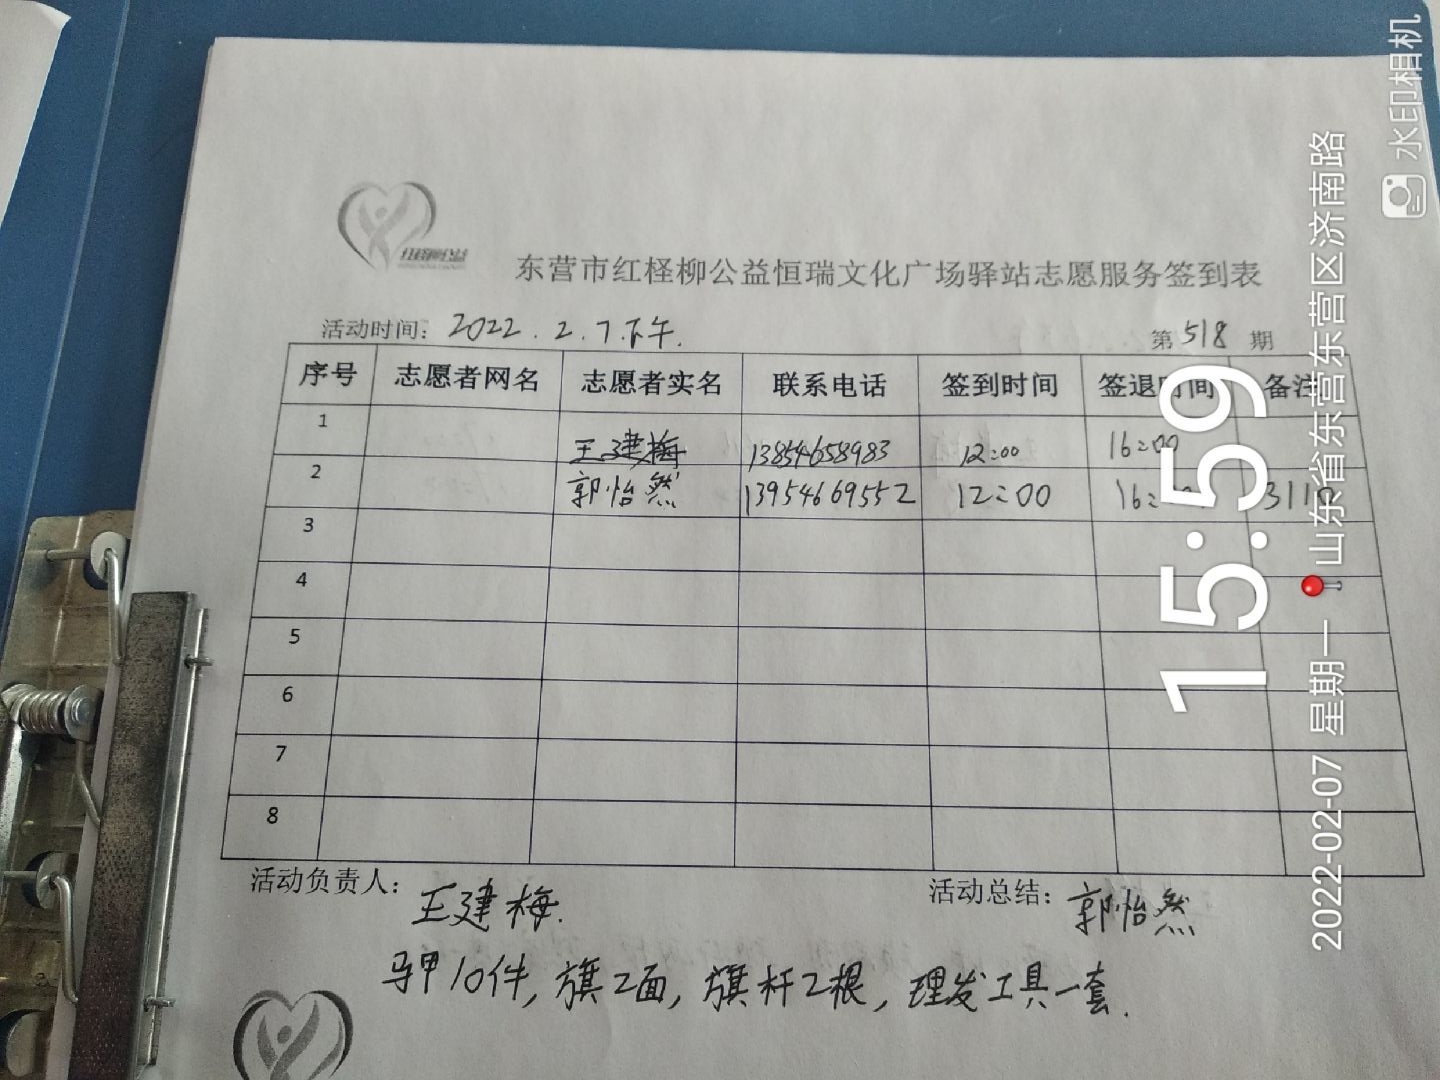 红柽柳公益
东营市红柽柳公益恒瑞文化广场驿站志愿服务签到表
活动时间：2022.2.7.下午.
第518期
序号 志愿者网名 志愿者实名 联系电话 签到时间 签退时间 备注
1 王建梅 13854658983 12:00 16:00
2 郭怡然 13954669552 12:00
3
4
5
6
7
8
活动负责人：王建梅.
活动总结：郭怡然
马甲10件,旗2面,旗杆2根,理发工具一套.
15:59
2022-02-07 星期一 山东省东营市东营区济南路
水印相机